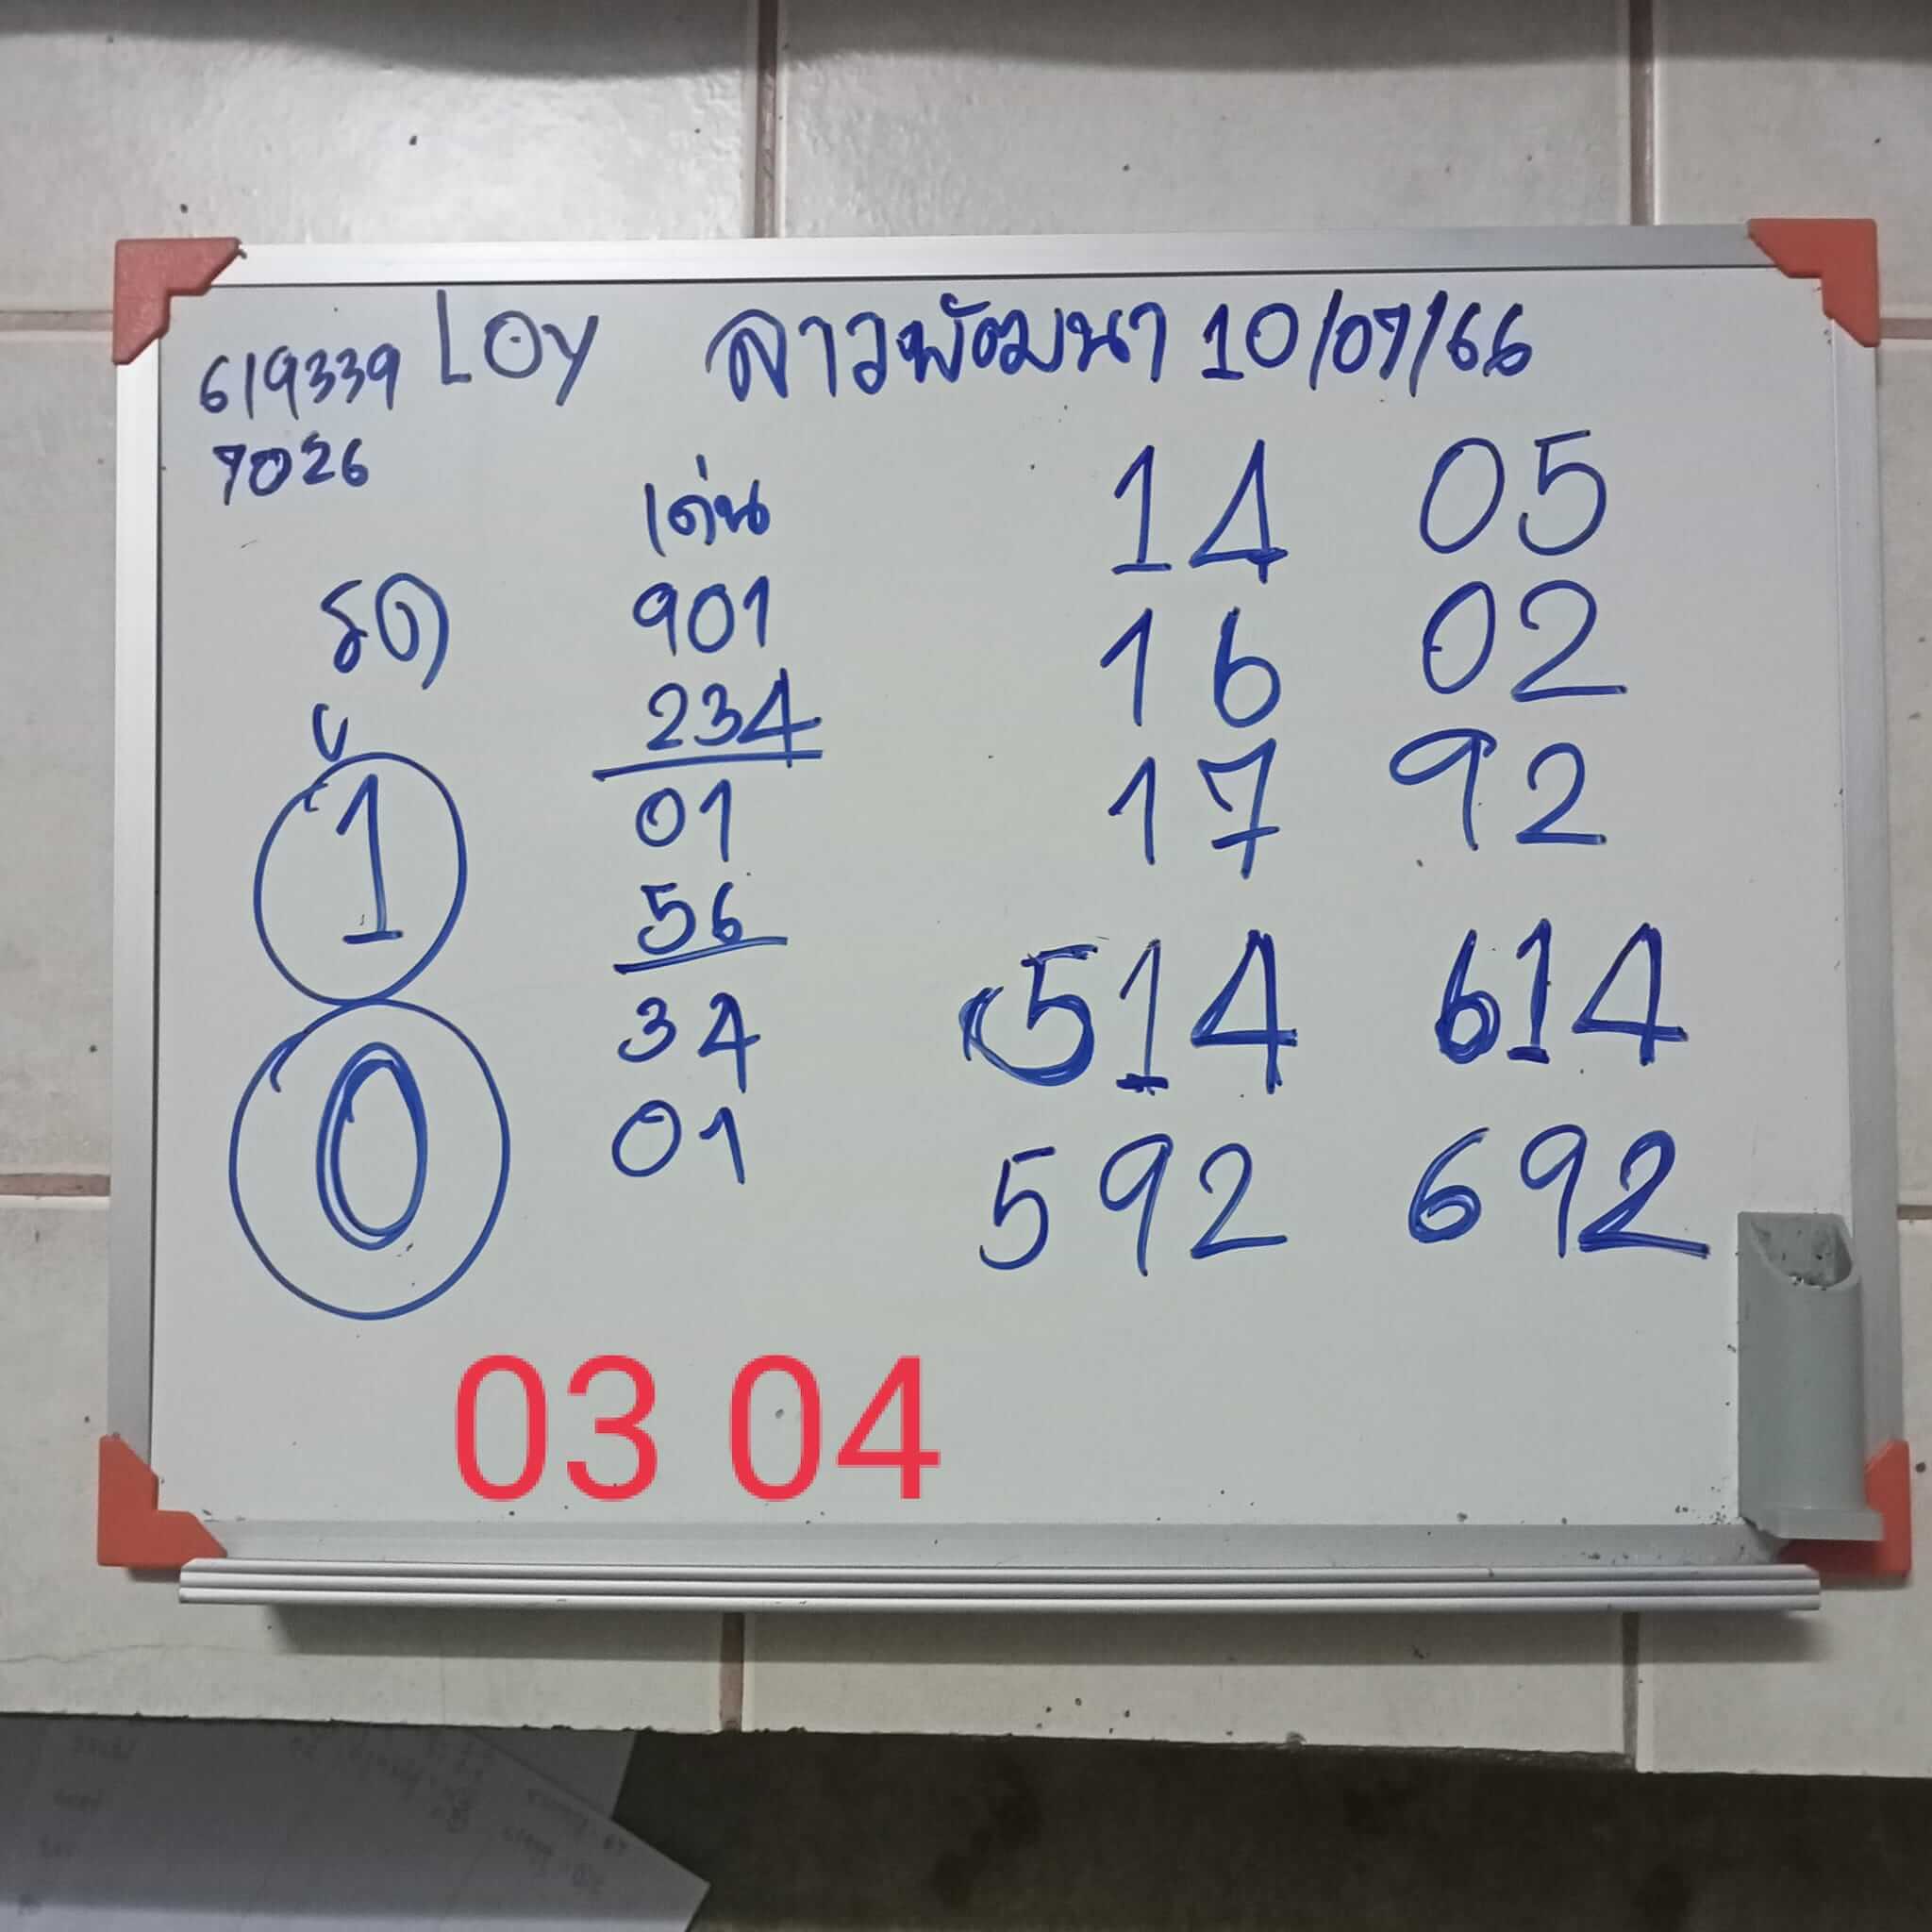 619339 LOY ลาวพัฒนา 10/07/66
7026
เด่น
รูด
1
0
901
234
01
56
34
01
14 05
16 02
17 92
514 614
592 692
03 04